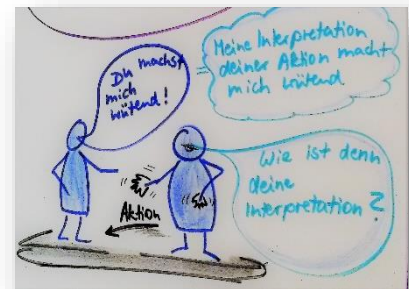 Du machst
mich
wütend!
=
Meine Interpretation
deiner Aktion macht
mich wütend
Wie ist denn
deine
Interpretation?
Aktion